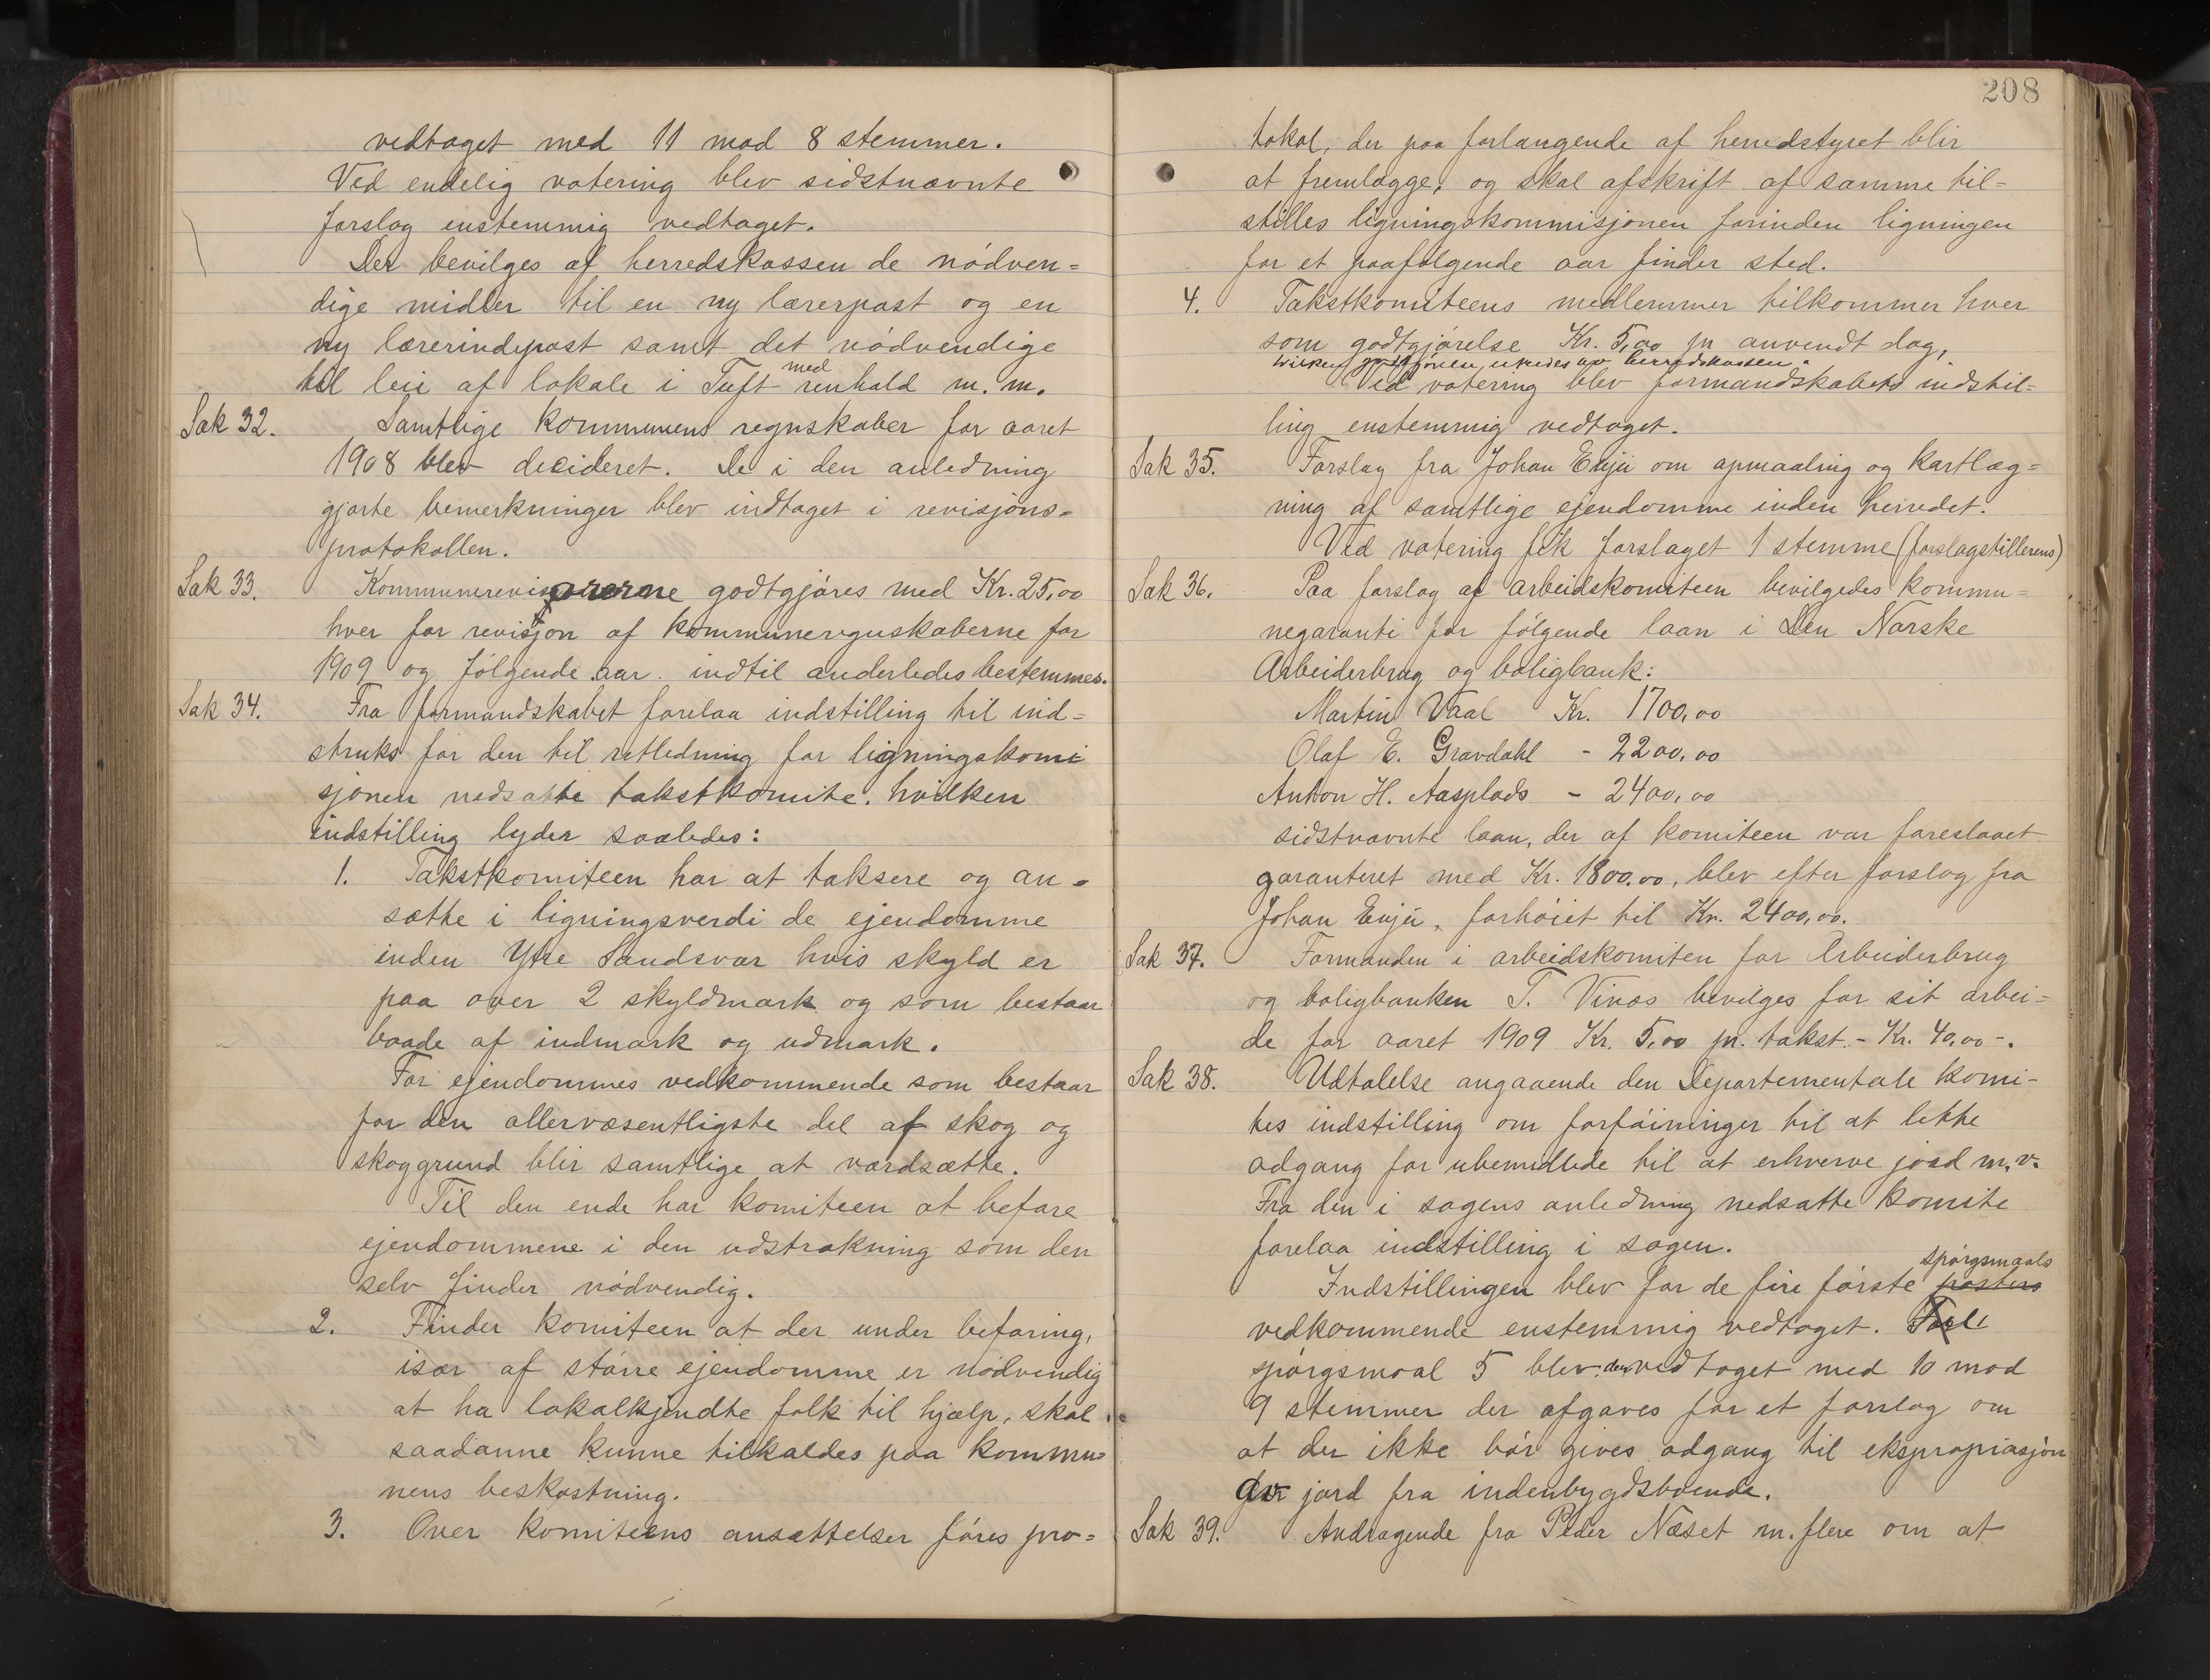 vedtaget med 11 mod 8 stemmer.
Ved endelig votering blev sidstnævnte
forslag enstemmig vedtaget.
Der bevilges af herredskassen de nødven=
dige midler til en ny lærerpost og en
ny lærerindepost samt det nødvendige
med
til leie af lokale i Tuft renhold m. m.
Sak 32. Samtlige kommunens regnskaber for aaret
1908 blev decideret. De i den anledning
gjorte bemerkninger blev indtaget i revisjons=
protokollen.
Sak 33. Kommunerevisorerne godtgjøres med Kr. 25,00
hver for revisjon af kommuneregnskaberne for
1909 og følgende aar indtil anderledes bestemmes.
Sak 34. Fra formandskabet forelaa indstilling til ind=
struks for den til retledning for ligningskomi
sjonen nedsatte takstkomite, hvilken
indstilling lyder saaledes:
1. Takstkomiteen har at taksere og an=
sætte i ligningsverdi de ejendomme
inden Ytre Sandsvær hvis skyld er
paa over 2 skyldmark og som bestaar
baade af indmark og udmark.
For ejendommes vedkommende som bestaar
for den allervæsentligste del af skog og
skoggrund blir samtlige at værdsætte.
Til den ende har komiteen at befare
ejendommene i den udstrækning som den
selv finder nødvendig.
2. Finder komiteen at der under befaring,
især af større ejendomme er nødvendig
at ha lokalkjendte folk til hjælp, skal
saadanne kunne tilkaldes paa kommu=
nens beskostning.
3. Over komiteens ansættelser føres pro=
208
tokol, der paa forlangende af herredstyret blir
at fremlægge, og skal afskrift af samme til=
stilles ligningskommisjonen forinden ligningen
for et paafølgende aar finder sted.
4. Takstkomiteens medlemmer tilkommer hver
som godtgjørelse Kr. 5,00 pr anvendt dag,
utredes av herredskassen.
Ved votering blev formandskabets indstil=
ling enstemmig vedtaget.
Sak 35. Forslag fra Johan Enju om opmaaling og kartlæg=
ning af samtlige ejendomme inden herredet.
Ved votering fik forslaget 1 stemme (forslagstillerens)
Sak 36. Paa forslag af arbeidskomiteen bevilgedes kommu=
negaranti for følgende laan i Den Norske
Arbeiderbrug og boligbank:
Martin Vaal Kr. 1700,00
Olaf E. Gravdahl - 2200,00
Anton H. Aasplads - 2400,00
sidstnævnte laan, der af komiteen var foreslaaet
garanteret med Kr. 1800,00, blev efter forslag fra
Johan Enju, forhøiet til Kr. 2400,00.
Sak 37. Formanden i arbeidskomiten for Arbeiderbrug
og boligbanken T. Vinæs bevilges for sit arbei=
de for aaret 1909 Kr. 5,00 pr. takst - Kr. 40,00 -.
Sak 38. Udtalelse angaaende den Departementale komi-
tes indstilling om forføininger til at lette
adgang for ubemidlede til at erhverve jord m.v.
Fra den i sagens anledning nedsatte komite
forelaa indstilling i sagen.
spørgsmaals
Indstillingen blev for de fire første posters
vedkommende enstemmig vedtaget.
spørgsmaal 5 blev den vedtaget med 10 mod
9 stemmer der afgaves for et forslag om
at der ikke bør gives adgang til ekspropriasjon
av jord fra indenbygdsboende.
Sak 39. Andragende fra Peder Næset m. flere om at